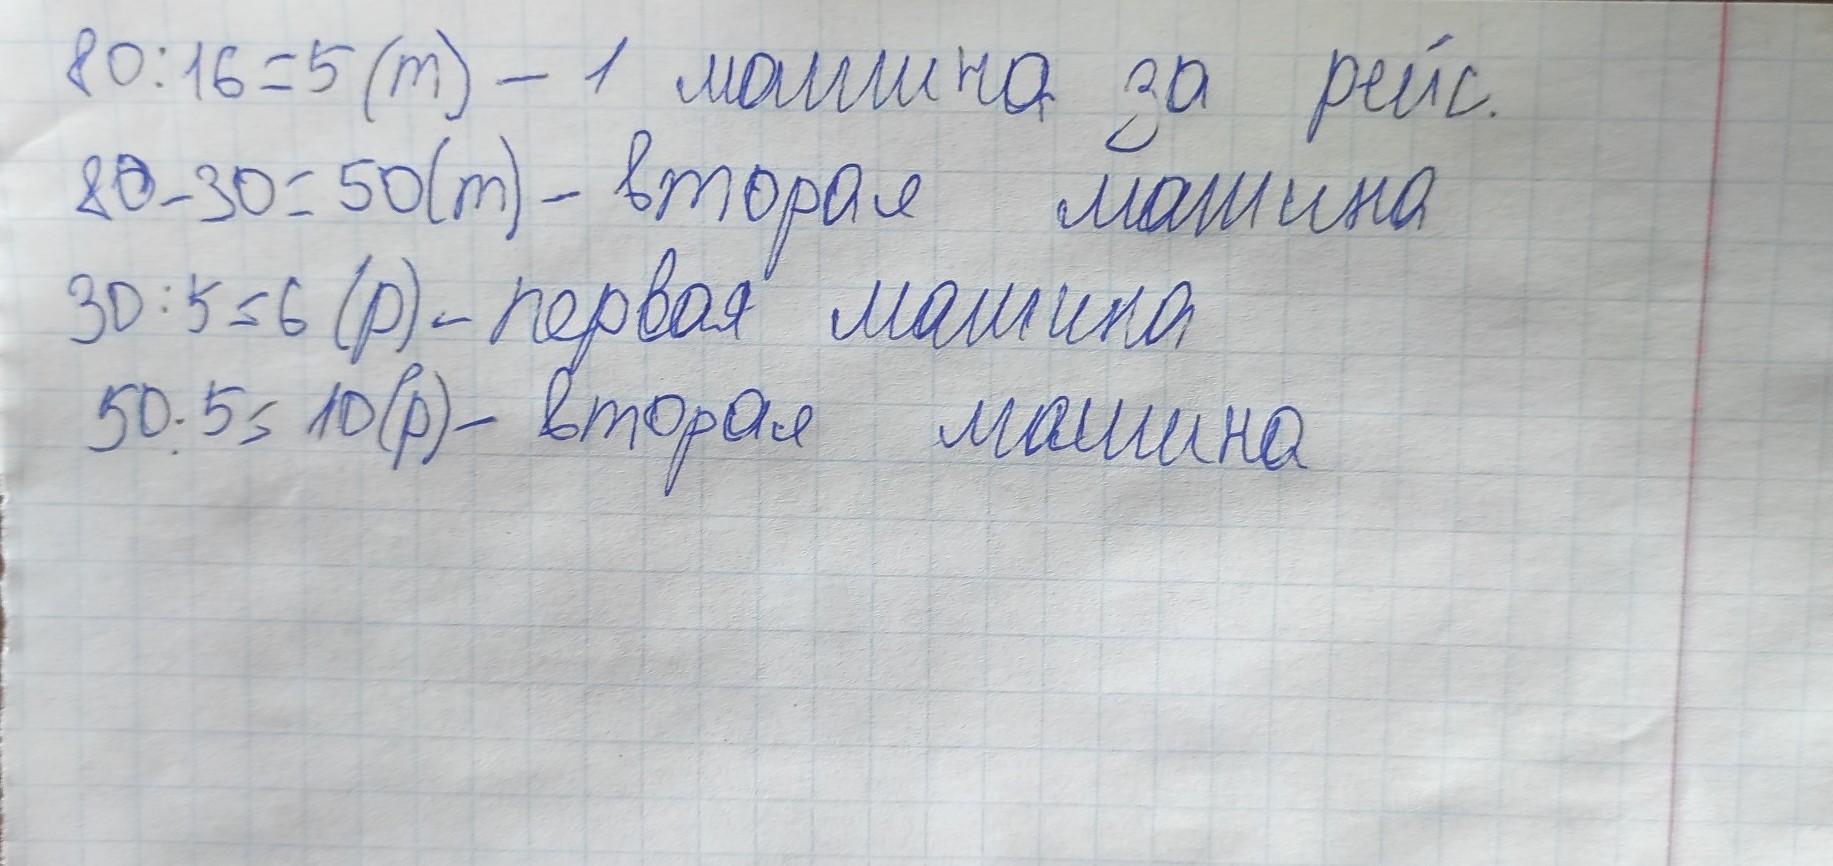 80:16=5(т) – 1 машина за рейс.
80-30=50(т) – вторая машина
30:5=6 (р) – первая машина
50:5= 10(р) – вторая машина